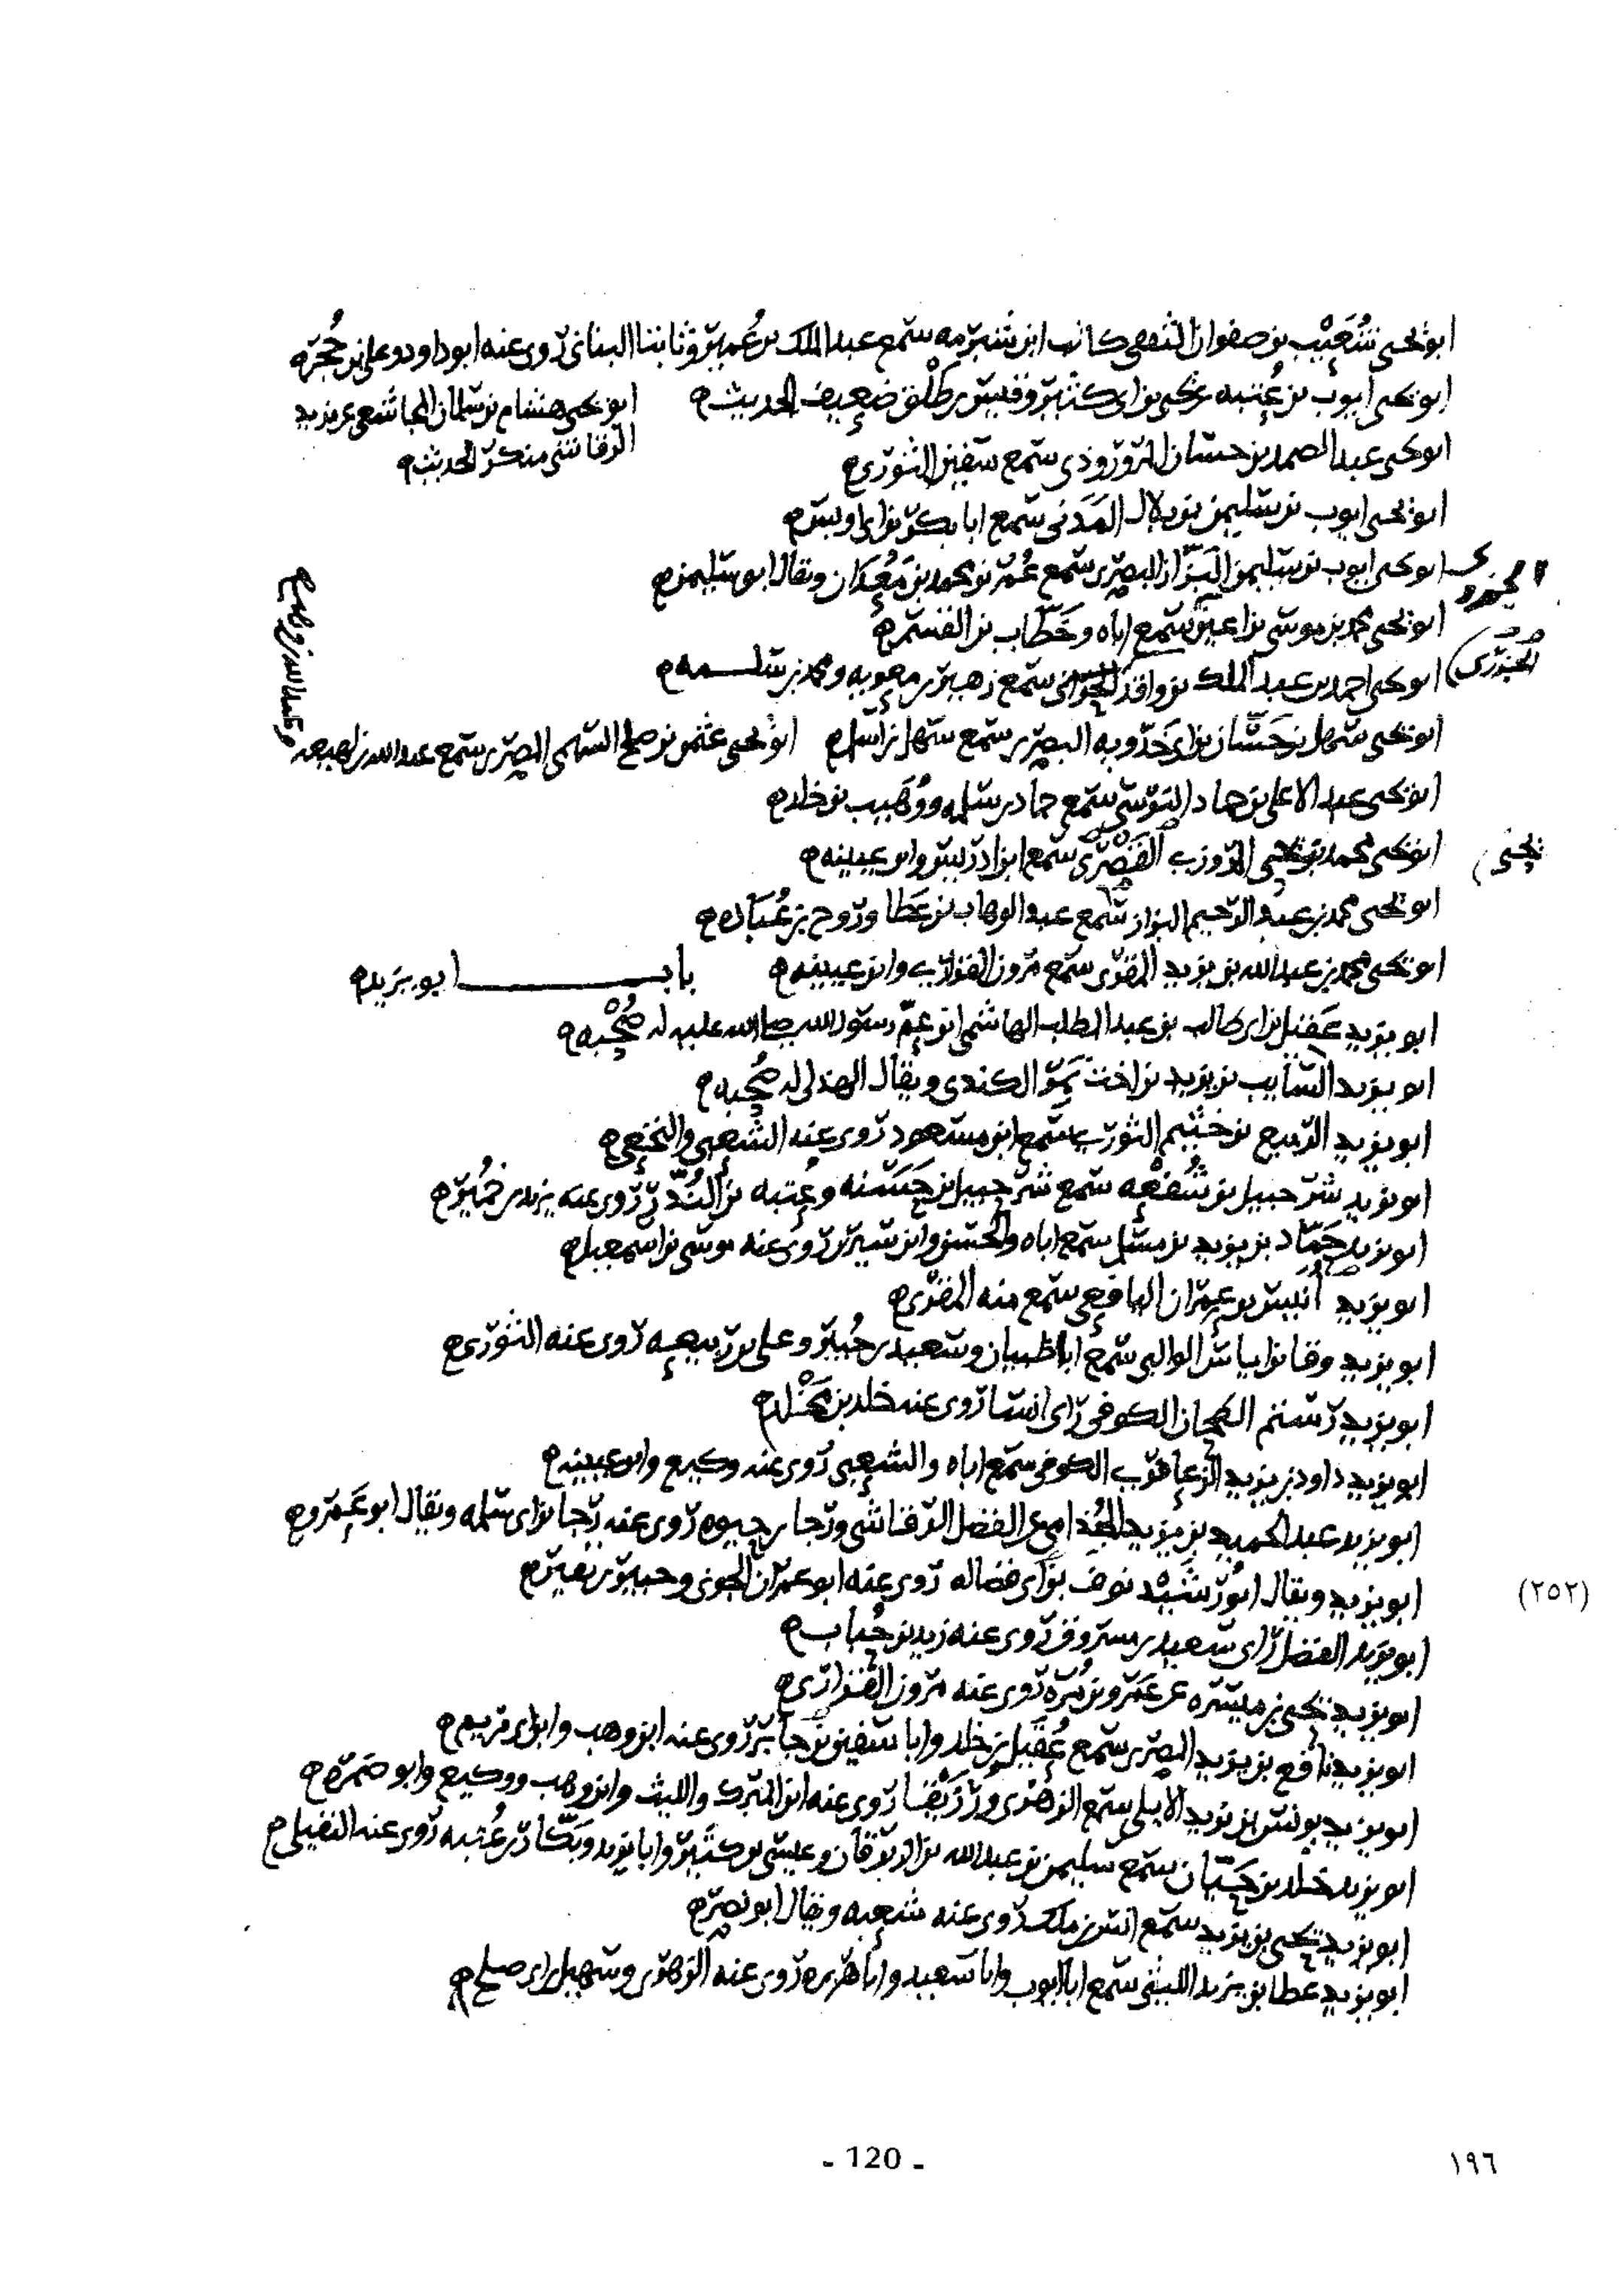 ابو يحيى شُعَيْب بن صفوان الثقفي كاتب ابن شبرمه سمع عبد الملك بن عُمير وثابتا البناني روى عنه ابو داود وعلي بن حُجر
ابو يحيى ايوب بن عُتبه عن يحيى بن ابي كثير وقيس بن طَلْق ضعيف الحديث
ابو يحيى هشام بن سلمان المجاشعي عن يزيد
الرقاشي منكر الحديث
ابو يحيى عبد الصمد بن حسان المروروذي سمع سفين الثوري
ابو يحيى ايوب بن سليمن بن بلال المَدَني سمع ابا بكر بن ابي اويس
ابو يحيى ايوب بن سليمن البزاز البصري سمع عُمر بن محمد بن مَعْدان ويقال ابو سليمن
ابو يحيى محمد بن موسى بن اعين سمع اباه وخَطّاب بن القسم
ابو يحيى احمد بن عبد الملك بن واقد الحراني سمع زهير بن معويه ومحمد بن سلمه
ابو يحيى سهل بن حَسّان بن ابي خَدّويه البصري سمع سهل بن اسلم
ابو يحيى عثمن بن صلح السهمي المصري سمع عبد الله بن لهيعه
وعبد الله بن وهب
ابو يحيى عبد الاعلى بن حماد النرسي سمع حماد بن سلمه ووُهَيب بن خالد
ابو يحيى محمد بن يحيى المروزي القَصْري سمع ابن ادريس وابن عيينه
يحيى
ابو يحيى محمد بن عبد الرحيم البزاز سمع عبد الوهاب بن عَطا وروح بن عُبَاده
ابو يحيى محمد بن عبد الله بن يزيد المقرى سمع مرون الفزاري وابن عيينه
باب ابو يزيد
ابو يزيد عَقيل بن ابي طالب بن عبد المطلب الهاشمي ابن عمّ رسول الله صلى الله عليه له صُحْبه
ابو يزيد السايب بن يزيد بن اخت نمر الكندي ويقال الهذلي له صُحبه
ابو يزيد الربيع بن خُثيم الثوري سمع ابن مسعود روى عنه الشعبي والنخعي
ابو يزيد شرحبيل بن شُفْعه سمع شرحبيل بن حَسَنه وعُتبه بن النُدَّر روى عنه يزيد بن خُمير
ابو يزيد حَمّاد بن يزيد بن مسلم سمع اباه والحسن وابن سيرين روى عنه موسى بن اسمعيل
ابو يزيد أُنَيس بن عمران اليافعي سمع منه المقرى
ابو يزيد وقا بن اياس الوالبي سمع ابا ظبيان وسعيد بن جُبير وعلي بن ربيعه روى عنه الثوري
ابو يزيد رستم الطحان الكوفي راى انسا روى عنه خلد بن مَخْلد
ابو يزيد داود بن يزيد الزعافري الكوفي سمع اباه والشعبي روى عنه وكيع وابن عيينه
ابو يزيد عبد الحميد بن يزيد الجُذامي عن الفضل الرقاشي ورجا بن حيوه روى عنه رجا بن ابي سلمه ويقال ابو عَمرو
ابو يزيد ويقال ابو رَشيْد نوف بن ابي فضاله روى عنه ابو عمران الجوني وجبير بن نفير
(٢٥٢)
ابو يزيد الفضل راى سعيد بن مسروق روى عنه زيد بن حُباب
ابو يزيد يحيى بن ميسره عن عَمرو بن مُرّه روى عنه مرون الفزاري
ابو يزيد نافع بن يزيد المصري سمع عُقَيل بن خلد وابا سفين بن جابر روى عنه ابن وهب وابن ابي مريم
ابو يزيد يونس بن يزيد الايلي سمع الزهري ورُزَيْقا روى عنه ابن المبرك والليث وابن وهب ووكيع وابو ضمره
ابو يزيد خلد بن حَيّان سمع سليمن بن عبد الله بن الزبرقان وعيسى بن كثير وابا يزيد وبَكّار بن عُتبه روى عنه النفيلي
ابو يزيد يحيى بن يزيد سمع انس بن ملك روى عنه شعبه ويقال ابو نصر
ابو يزيد عطا بن يزيد الليثي سمع ابا ايوب وابا سعيد وابا هريره روى عنه الزهري وسهيل بن ابي صلح
- 120 -
١٩٦